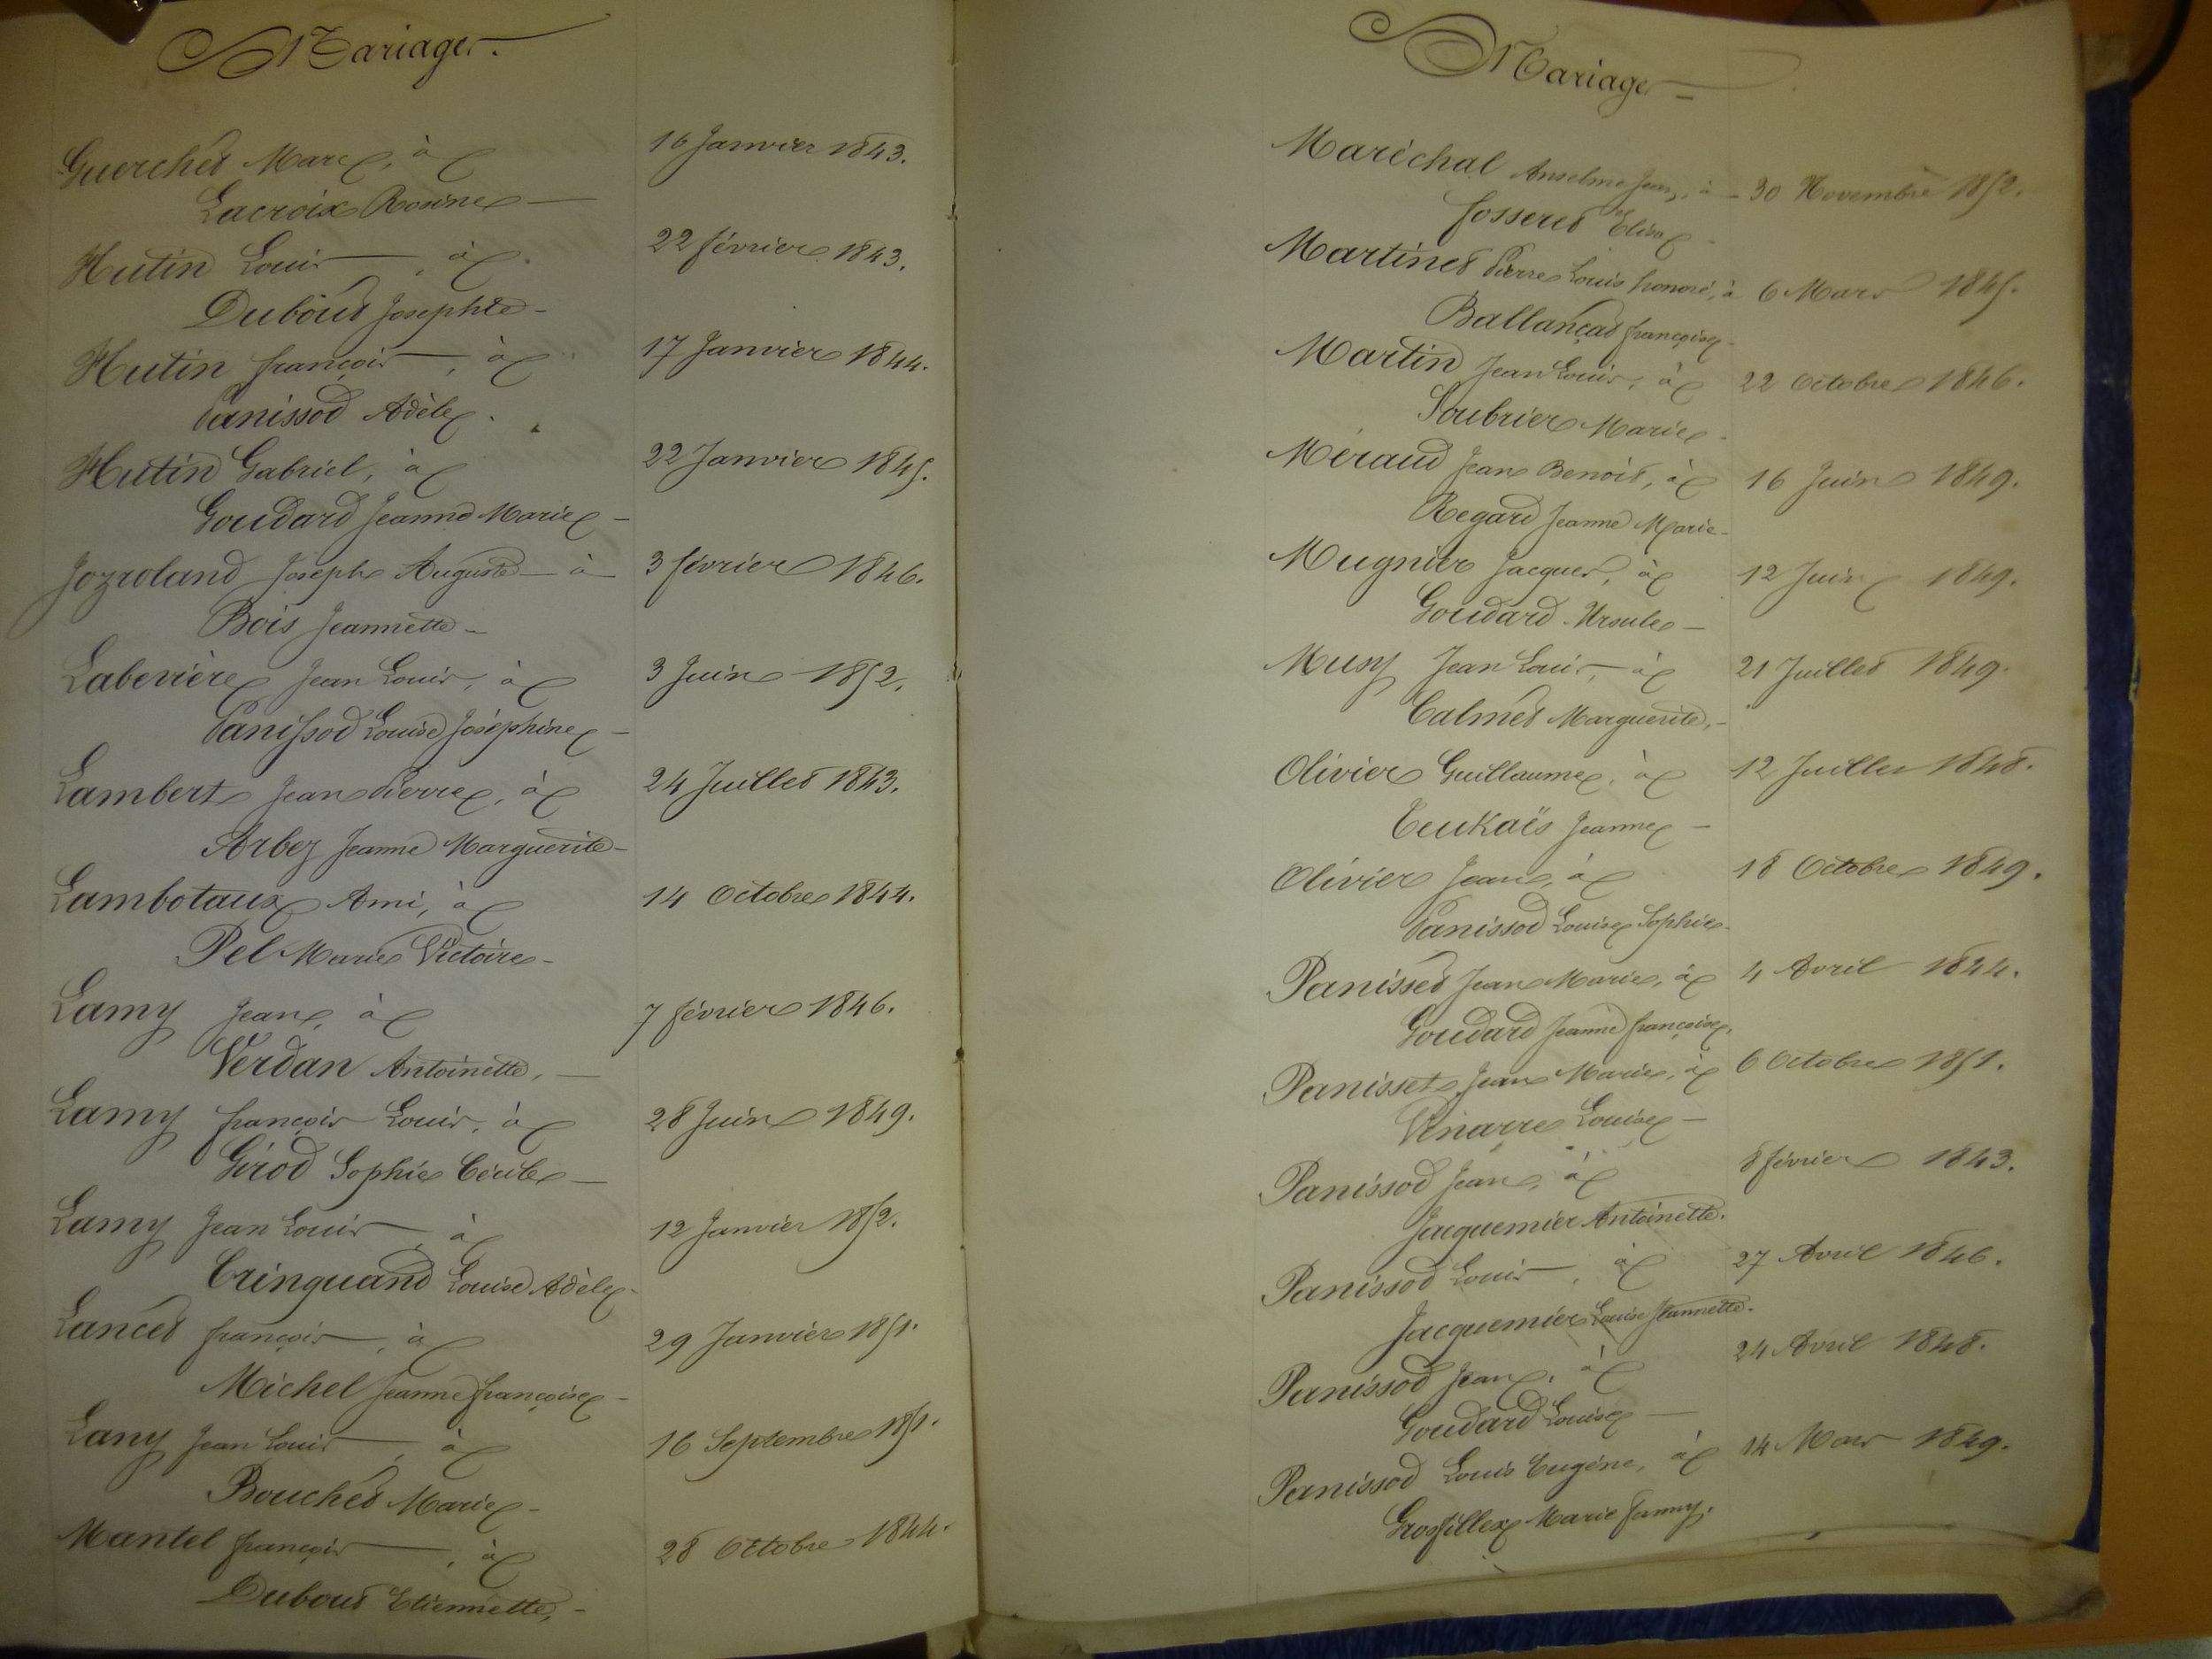 Mariages.
Guerchet Marc, à 16 Janvier 1843.
Lacroix Rosine
Hutin Louis, à 22 février 1843.
Dubout Josephte
Hutin françois, à 17 Janvier 1844.
Panissod Adèle
Hutin Gabriel, à 22 Janvier 1845.
Goudard Jeanne Marie
Jozroland Joseph Auguste à 3 février 1846.
Bois Jeannette
Labevière Jean Louis, à 3 Juin 1852.
Panissod Louise Joséphine
Lambert Jean Pierre, à 24 Juillet 1843.
Arbez Jeanne Marguerite
Lambotaux Ami, à 14 Octobre 1844.
Pel Marie Victoire
Lamy Jean, à 7 février 1846.
Verdan Antoinette,
Lamy françois Louis, à 28 Juin 1849.
Girod Sophie Cécile
Lamy Jean Louis, à 12 Janvier 1852.
Cringuand Louise Adèle
Lancet françois, à 29 Janvier 1851.
Michel Jeanne françoise
Lany Jean Louis, à 16 Septembre 1851.
Bouchet Marie
Mantel françois, à 28 Octobre 1844.
Dubout Etiennette,
Mariages
Maréchal Anselme Jean, à 30 Novembre 1852.
fosseret Elisa
Martinet Pierre Louis honoré, à 6 Mars 1845.
Ballançat françoise
Martin Jean Louis, à 22 Octobre 1846.
Soubrier Marie
Méraud Jean Benoit, à 16 Juin 1849.
Regard Jeanne Marie
Mugnier Jacques, à 12 Juin 1849.
Goudard Ursule
Musy Jean Louis, à 21 Juillet 1849.
Calmet Marguerite,
Olivier Guillaume, à 12 Juillet 1848.
Jeanne
Olivier Jean, à 18 Octobre 1849.
Panissod Louise Sophie
Panisset Jean Marie, à 4 Avril 1844.
Goudard Jeanne françoise,
Panisset Jean Marie, à 6 Octobre 1851.
Vinarre Louise
Panissod Jean, à 8 février 1843.
Jacquemier Antoinette.
Panissod Louis, à 27 Avril 1846.
Jacquemier Louise Jeannette.
Panissod Jean, à 24 Avril 1848.
Goudard Louise
Panissod Louis Eugène, à 14 Mars 1849.
Grosfillex Marie fanny.